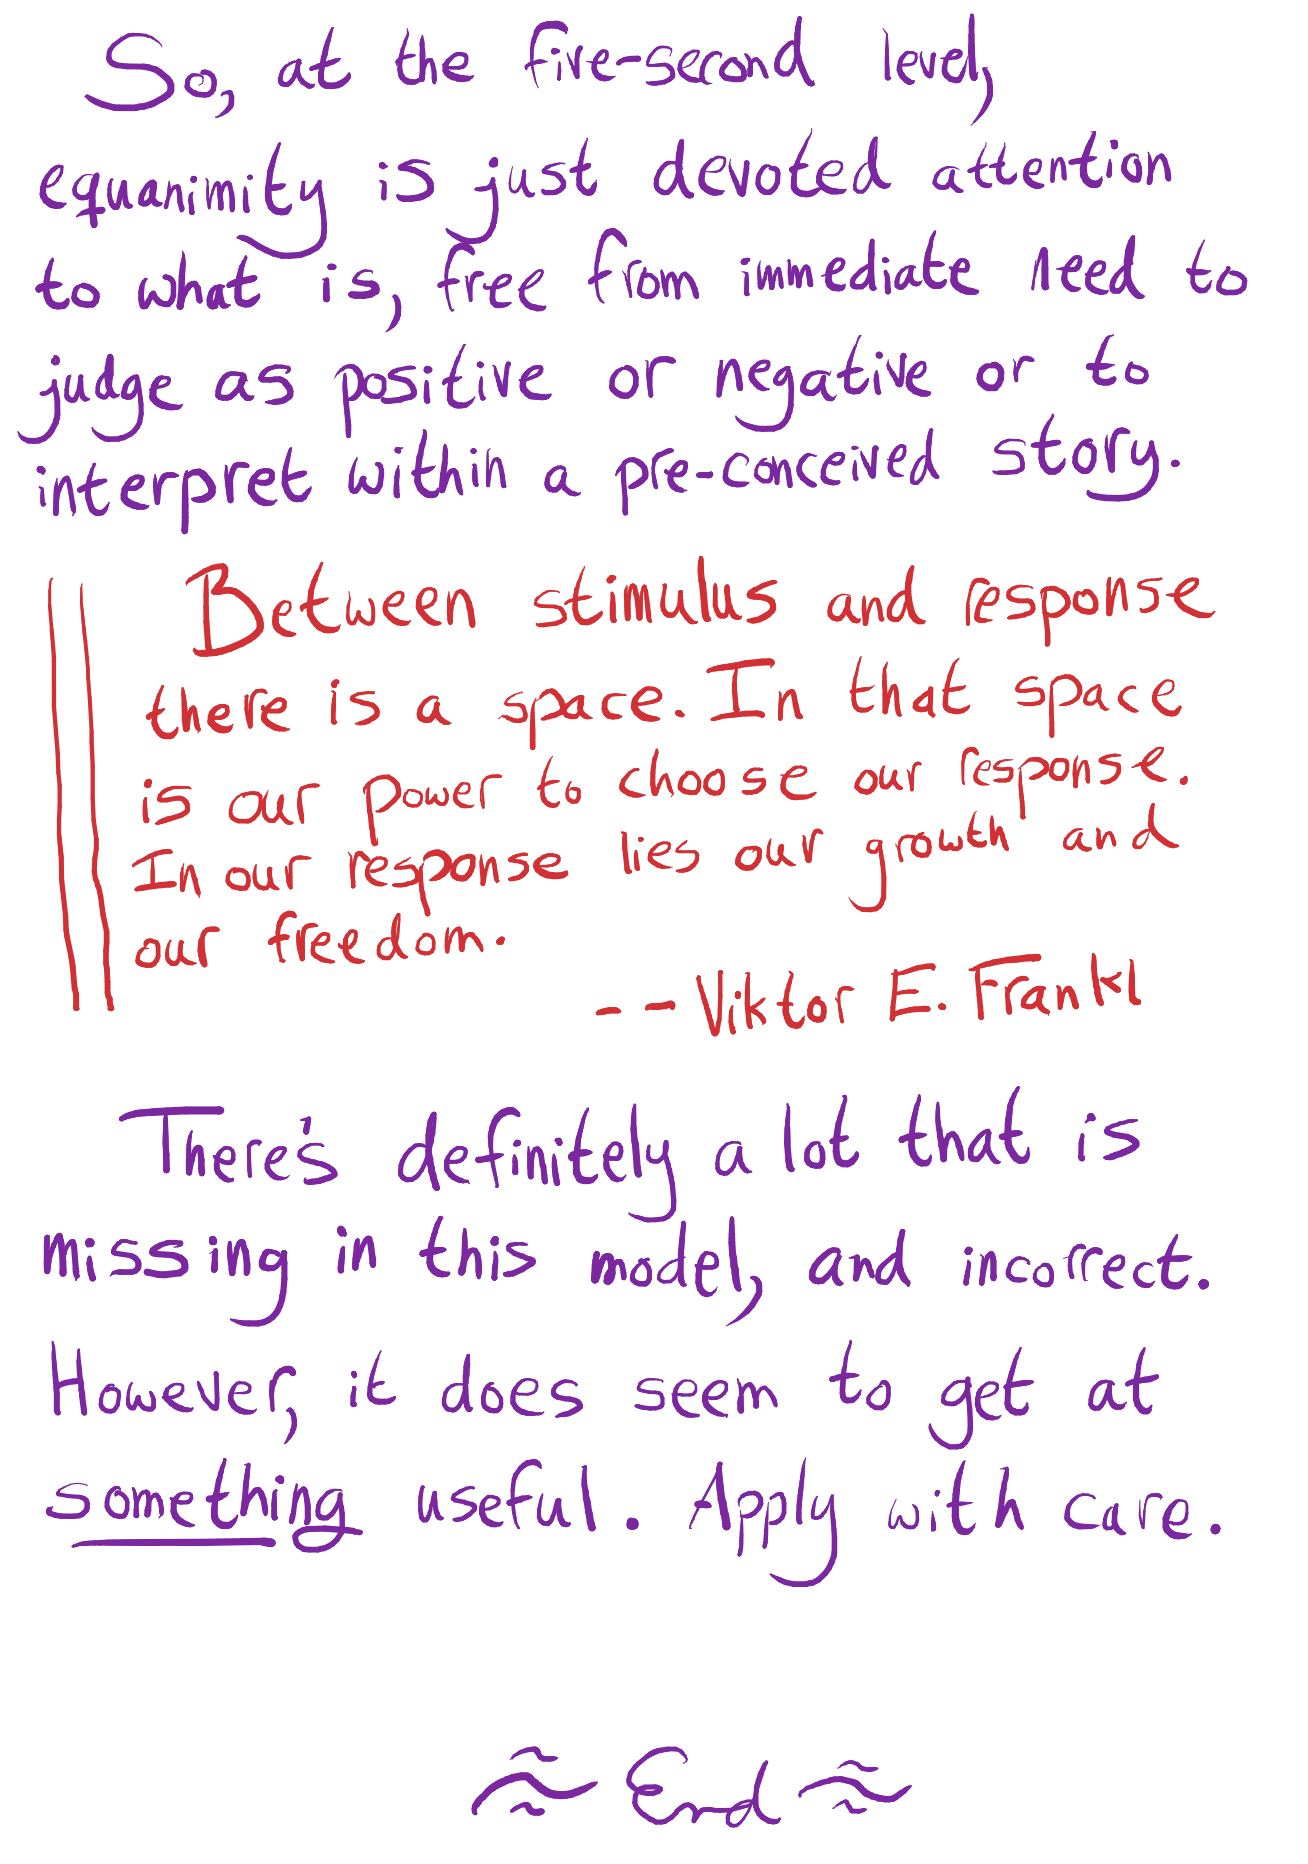 So, at the five-second level,
equanimity is just devoted attention
to what is, free from immediate need to
judge as positive or negative or to
interpret within a pre-conceived story.
Between stimulus and response
there is a space. In that space
is our power to choose our response.
In our response lies our growth and
our freedom.
-- Viktor E. Frankl
There's definitely a lot that is
missing in this model, and incorrect.
However, it does seem to get at
something useful. Apply with care.
End